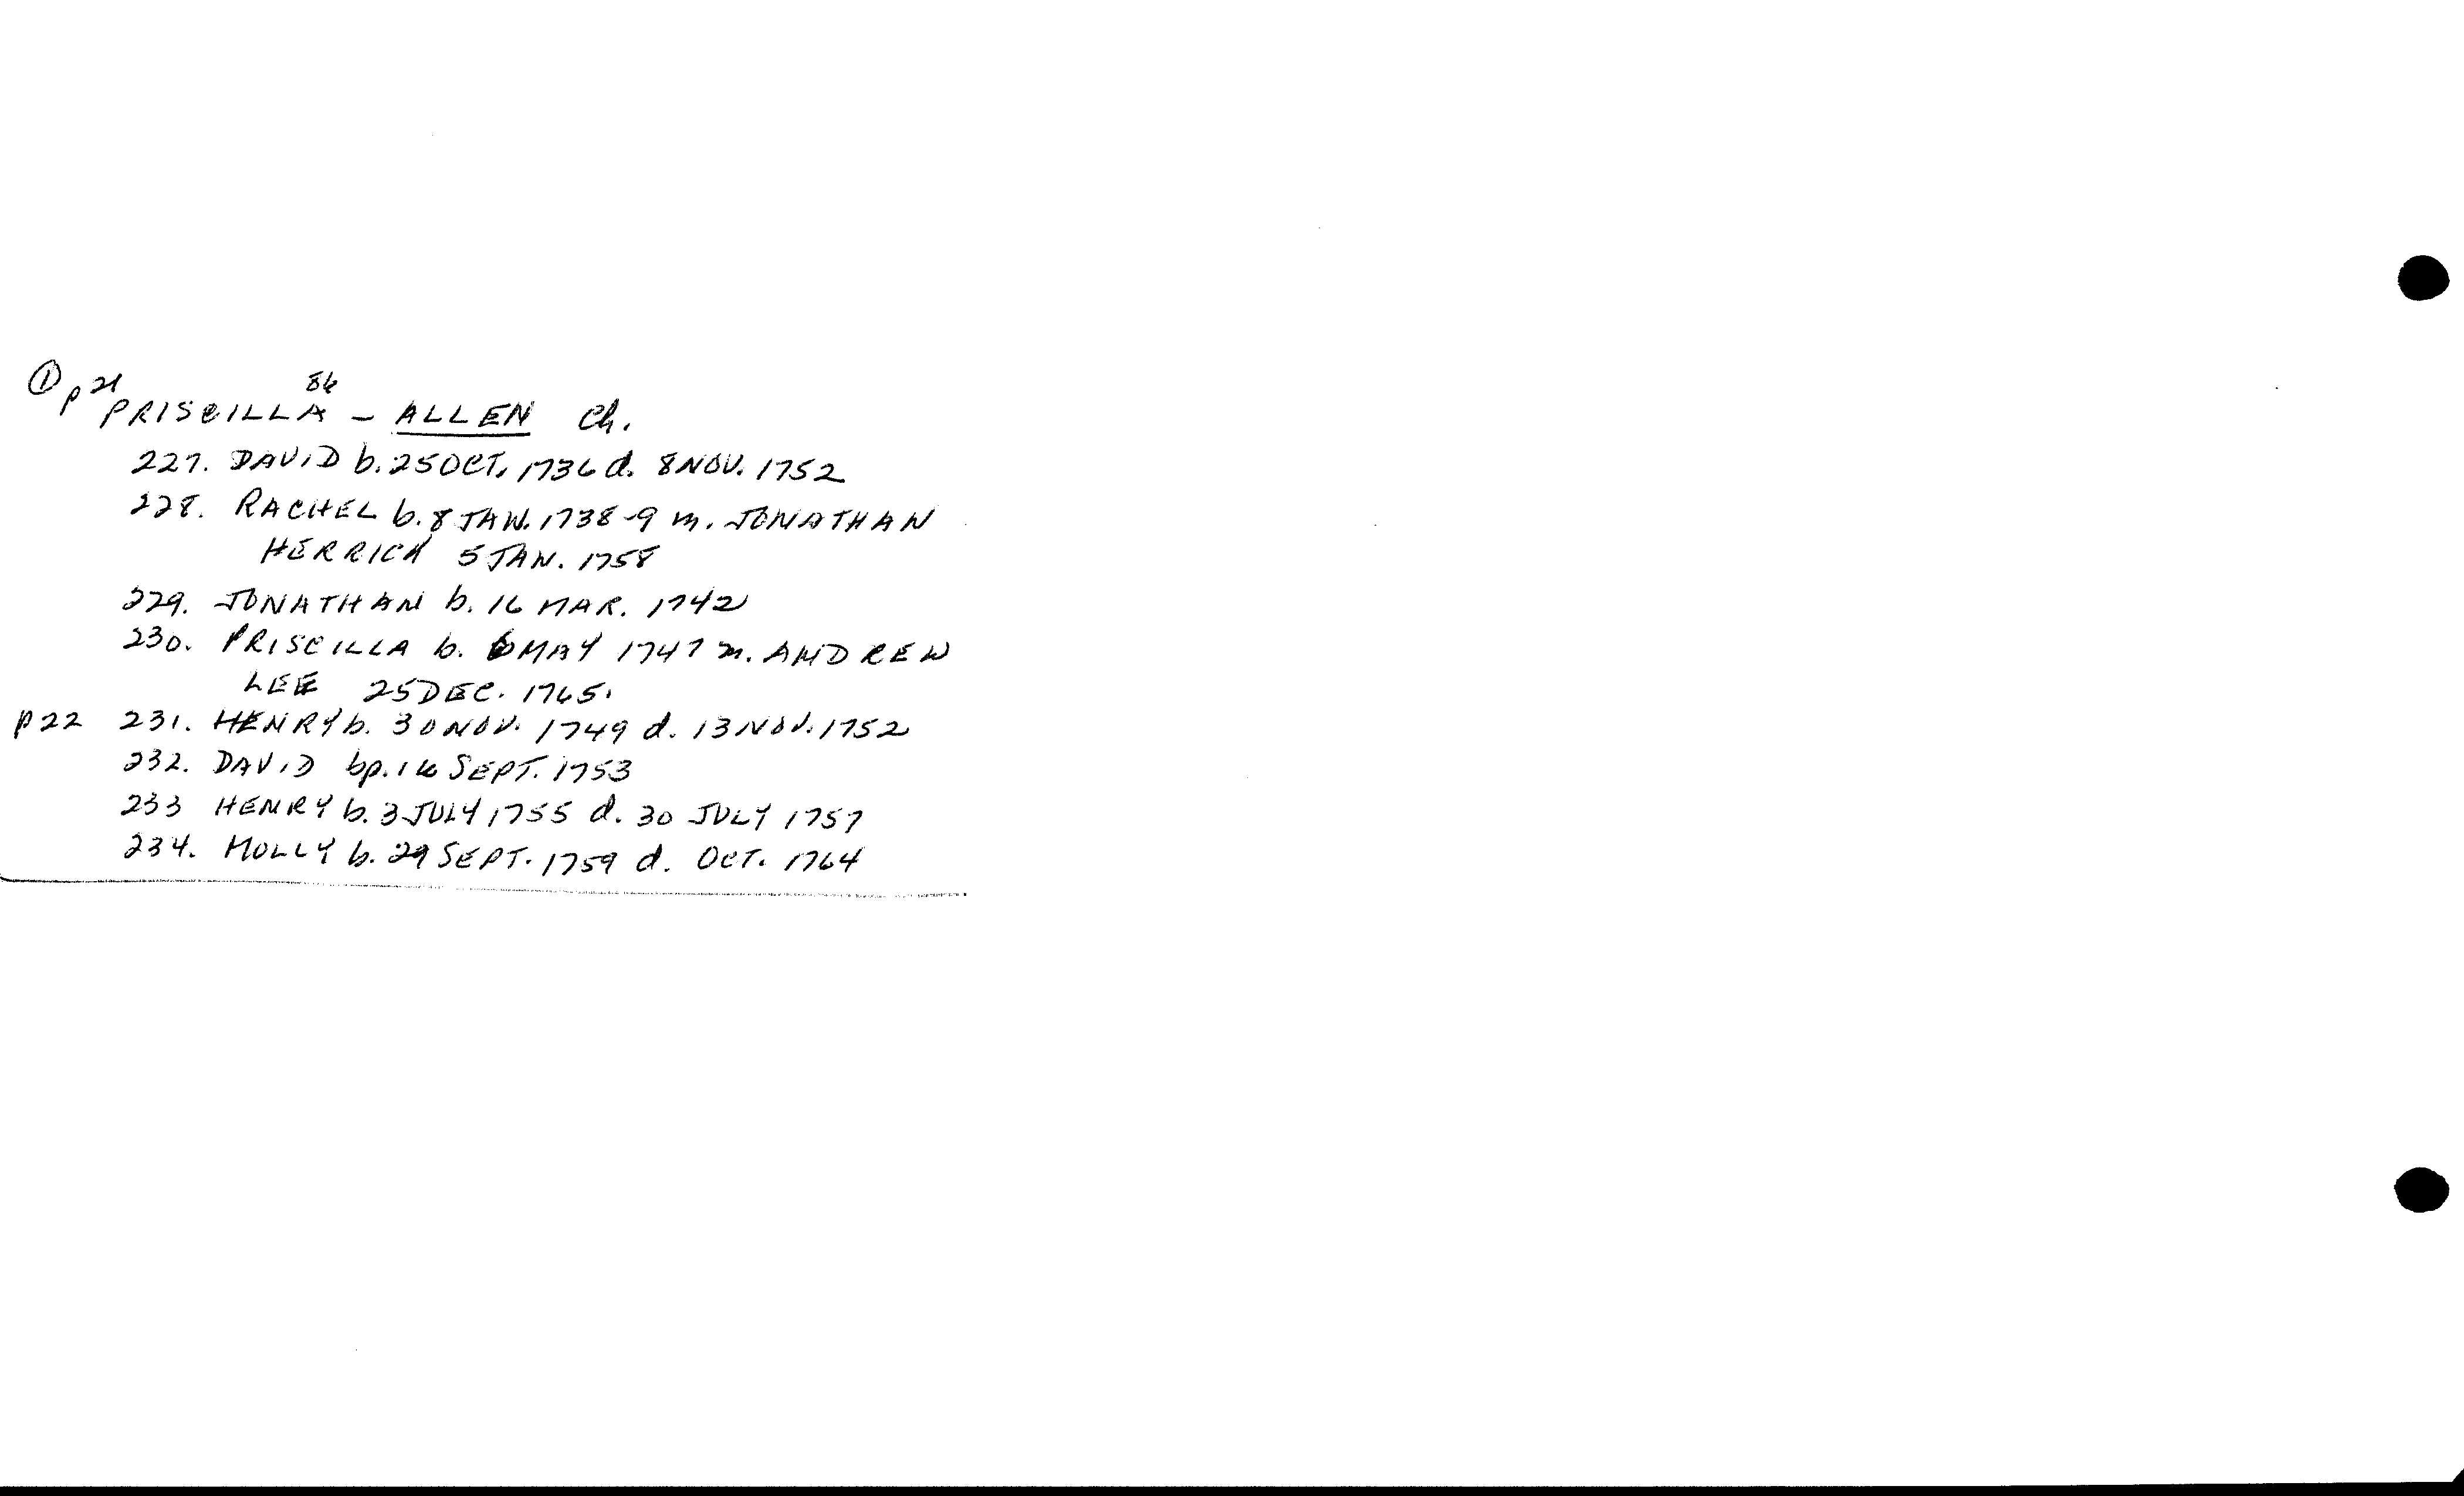 ① p 21
PRISCILLA 86 - ALLEN Ch.
227. DAVID b. 25 OCT. 1736 d. 8 NOV. 1752
228. RACHEL b. 8 JAN. 1738-9 m. JONATHAN
HERRICK 5 JAN. 1758
229. JONATHAN b. 16 MAR. 1742
230. PRISCILLA b. 6 MAY 1747 m. ANDREW
LEE 25 DEC. 1765.
p 22 231. HENRY b. 30 NOV. 1749 d. 13 NOV. 1752
232. DAVID bp. 16 SEPT. 1753
233 HENRY b. 3 JULY 1755 d. 30 JULY 1757
234. MOLLY b. 29 SEPT. 1759 d. OCT. 1764